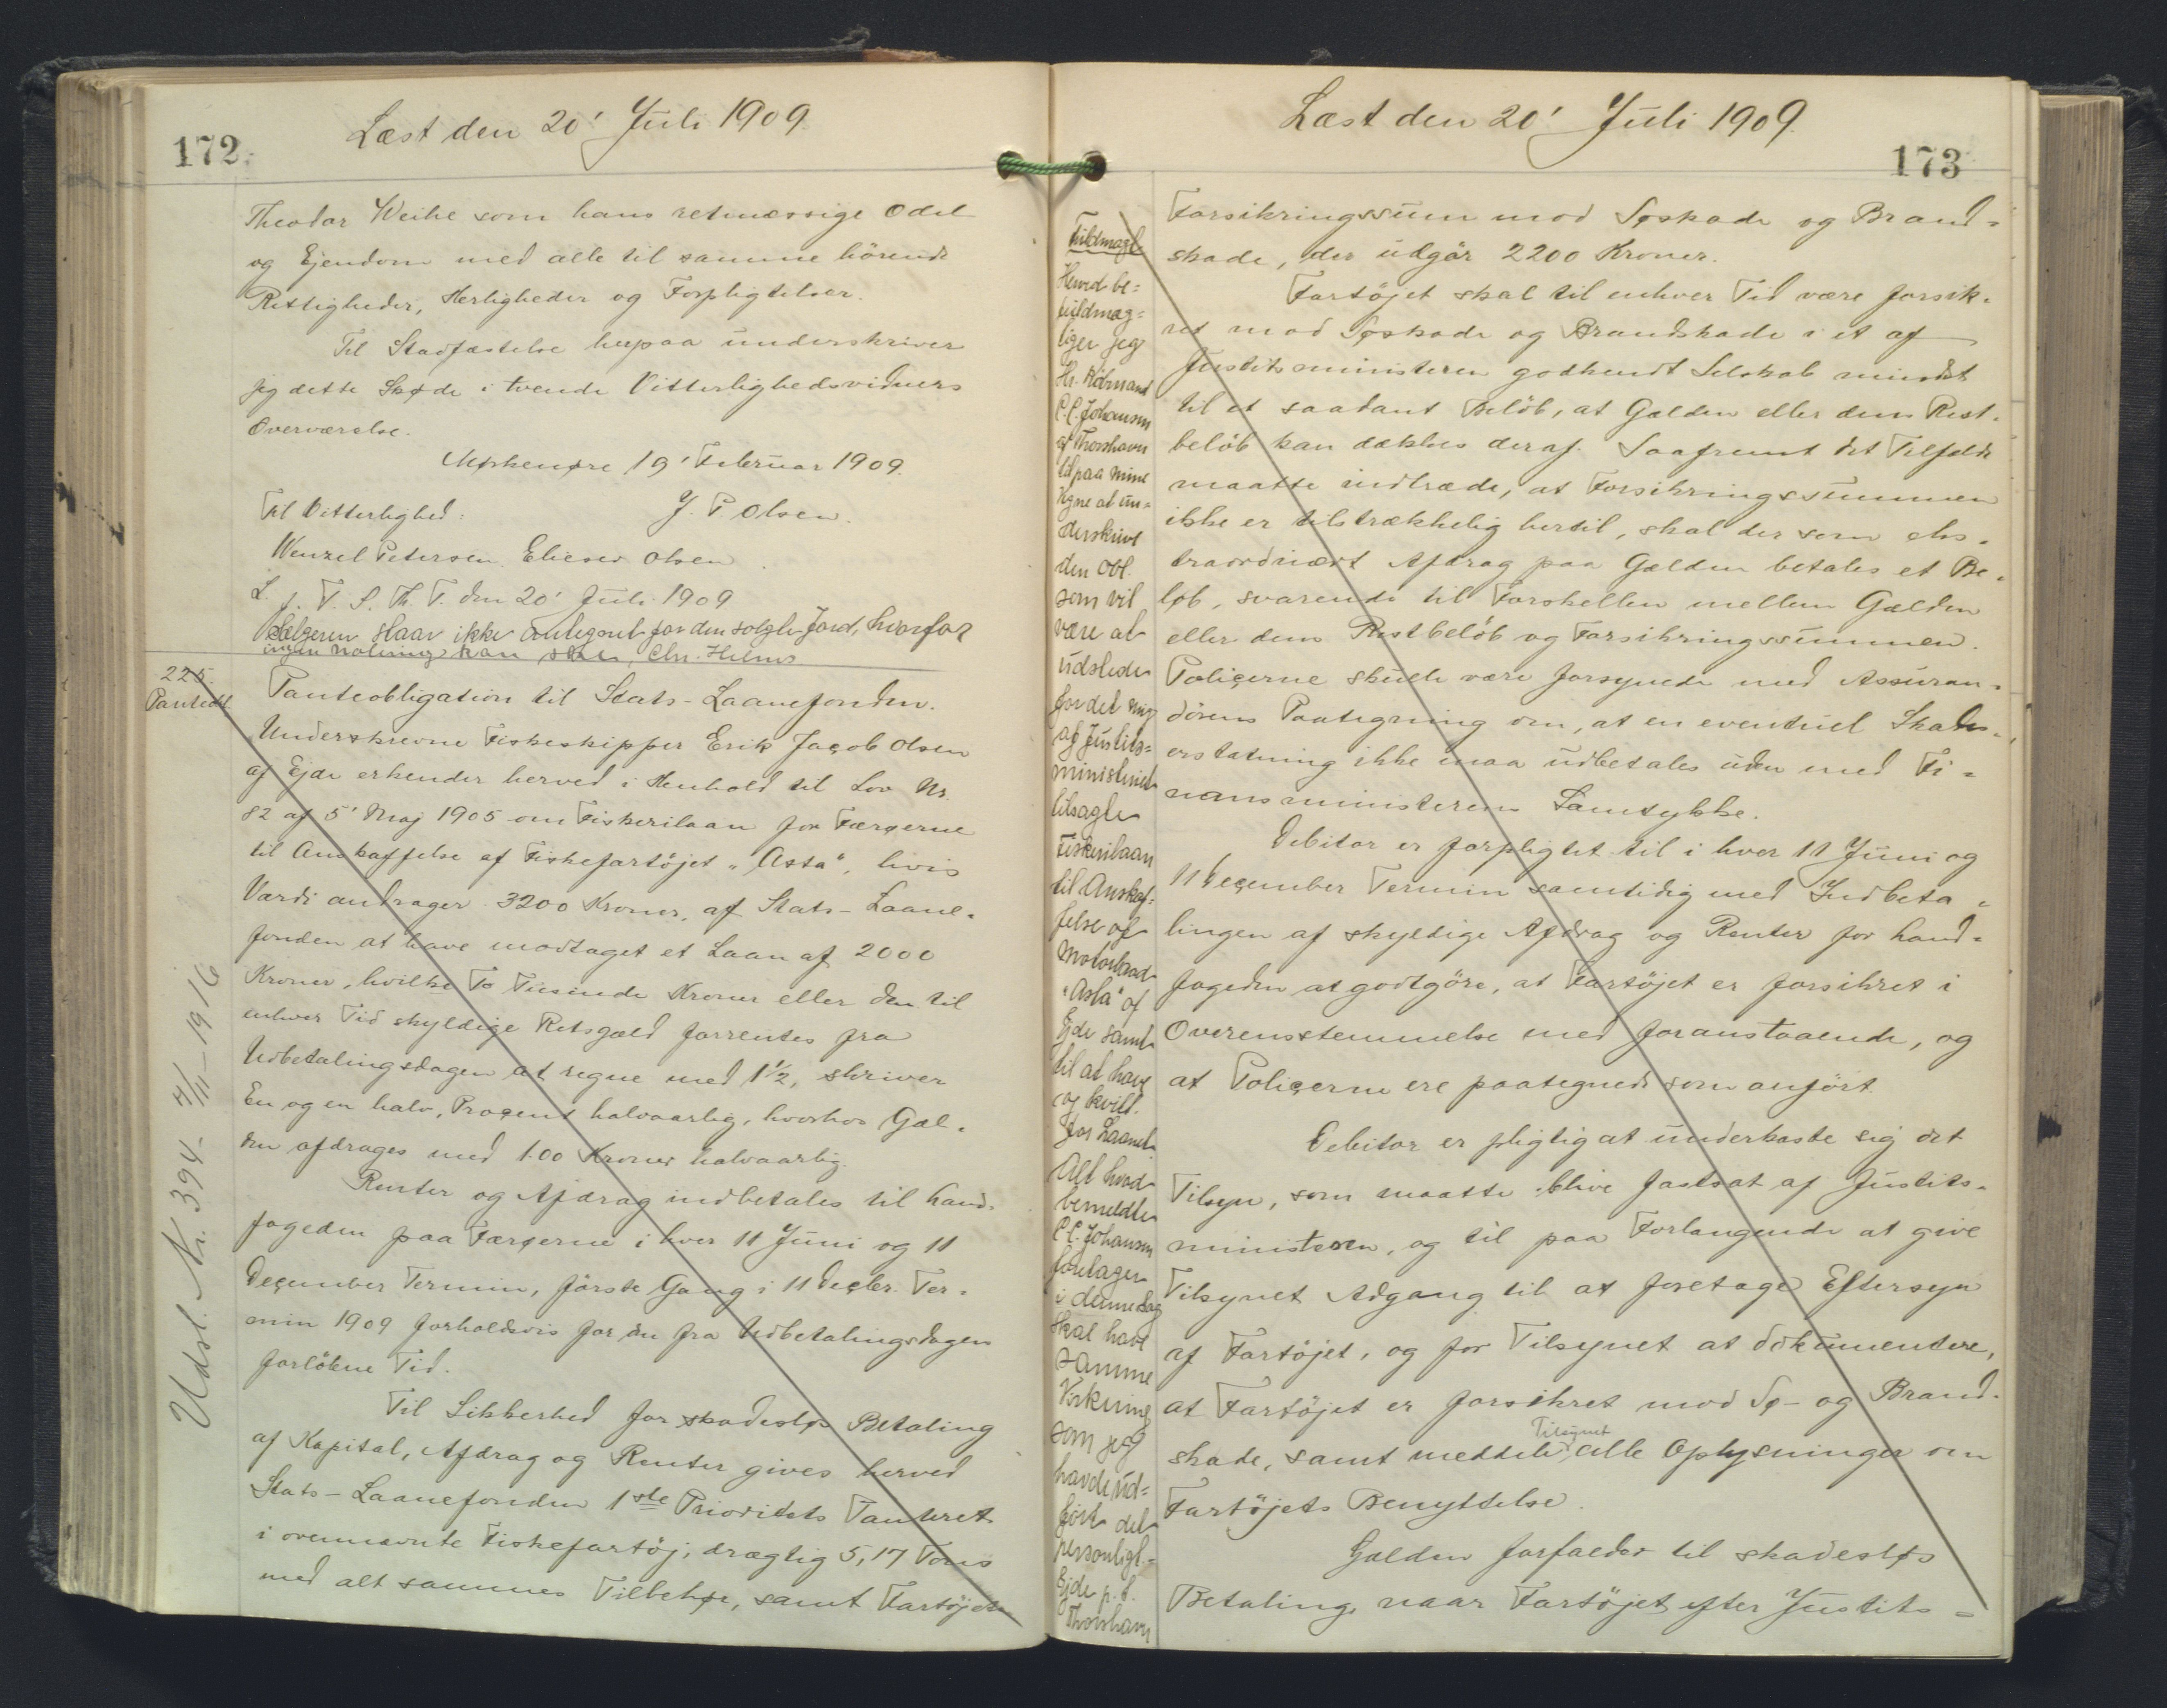 172.
Læst den 20' Juli 1909.
Theodor Weihe som hans retmæssige Odel
og Ejendom med alle til samme hörende
Rettigheder, Herligheder og Forpligtelser.
Til Stadfæstelse herpaa underskriver
jeg dette Skøde i tvende Vitterlighedsvidners
Overværelse.
19' Februar 1909.
Til Vitterlighed: J. P. Olsen.
Wenzel Petersen. Elieser Olsen.
L. i. V. S. Th. T. den 20' Juli 1909
Sælgeren staar ikke antegnet for den solgte Jord, hvorfor
ingen notering kan ske. Chr. Helms
225.
Pantedt
Panteobligation til Stats-Laanefonden.
Underskrevne Fiskeskipper Erik Jacob Olsen
af Ejde erkender herved i Henhold til Lov Nr.
82 af 5' Maj 1905 om Fiskerilaan for Færøerne
til Anskaffelse af Fiskefartøjet "Asta", hvis
Værdi andrager 3200 Kroner, af Stats-Laane-
fonden at have modtaget et Laan af 2000
Kroner, hvilke To Tusinde Kroner eller den til
enhver Tid skyldige Restgæld forrentes fra
Udbetalingsdagen at regne med 1½, skriver
En og en halv, Procent halvaarlig, hvorhos Gæl-
den afdrages med 100 Kroner halvaarlig.
Renter og Afdrag indbetales til Land-
fogeden paa Færøerne i hver 11 Juni og 11
December Termin, förste Gang i 11 Decbr. Ter-
min 1909 forholdsvis for den fra Udbetalingsdagen
forløbne Tid.
Til Sikkerhed for skadesløs Betaling
af Kapital, Afdrag og Renter gives herved
Stats-Laanefonden 1ste Prioritets Panteret
i ovennævnte Fiskefartöj, drægtig 5,17 Tons
med alt sammes Tilbehør, samt Fartöjets
Udsl. Nr. 394 - 4/11 - 1916
Læst den 20' Juli 1909.
173
Fuldmagt
Herved be=
fuldmæg=
tiger jeg
Hr. Købmand
C.C. Johansen
af Thorshavn
til paa mine
Vegne at un=
derskrive
den Obl.
som vil
være at
udstede
for det mig
af Justits=
ministeriet
tilsagte
Fiskerilaan
til Anskaf=
felse af
Motorbaad
"Asta" af
Ejde samt
til at hæve
og kvitt.
for Laanet.
Alt hvad
bemeldte
C.C. Johansen
foretager
i denne Sag
skal have
samme
Virkning
som jeg
havde ud=
ført det
personligt.=
Ejde p. t.
Thorshavn
Forsikringssum mod Søskade og Brand-
skade, der udgör 2200 Kroner.
Fartöjet skal til enhver Tid være forsik-
ret mod Søskade og Brandskade i et af
Justitsministeren godkendt Selskab mindst
til et saadant Belöb, at Gælden eller dens Rest-
belöb kan dækkes deraf. Saafremt det Tilfælde
maatte indtræde, at Forsikringssummen
ikke er tilstrækkelig hertil, skal der som eks-
traordinært Afdrag paa Gælden betales et Be-
löb, svarende til Forskellen mellem Gælden
eller dens Restbelöb og Forsikringssummen.
Policerne skulle være forsynede med Assuran-
dörens Paategning om, at en eventuel Skades-
erstatning ikke maa udbetales uden med Fi-
nansministerens Samtykke.
Debitor er forpligtet til i hver 11 Juni og
11 December Termin samtidig med Indbeta-
lingen af skyldige Afdrag og Renter for Land-
fogeden at godtgöre, at Fartöjet er forsikret i
Overensstemmelse med foranstaaende, og
at Policerne ere paategnede som anfört.
Debitor er pligtig at underkaste sig det
Tilsyn, som maatte blive fastsat af Justits-
ministeren, og til paa Forlangende at give
Tilsynet Adgang til at foretage Eftersyn
af Fartöjet, og for Tilsynet at dokumentere,
at Fartöjet er forsikret mod Sø- og Brand-
Tilsynet
skade, samt meddele alle Oplysninger om
Fartöjets Benyttelse.
Gælden forfalder til skadesløs
Betaling, naar Fartöjet efter Justits-